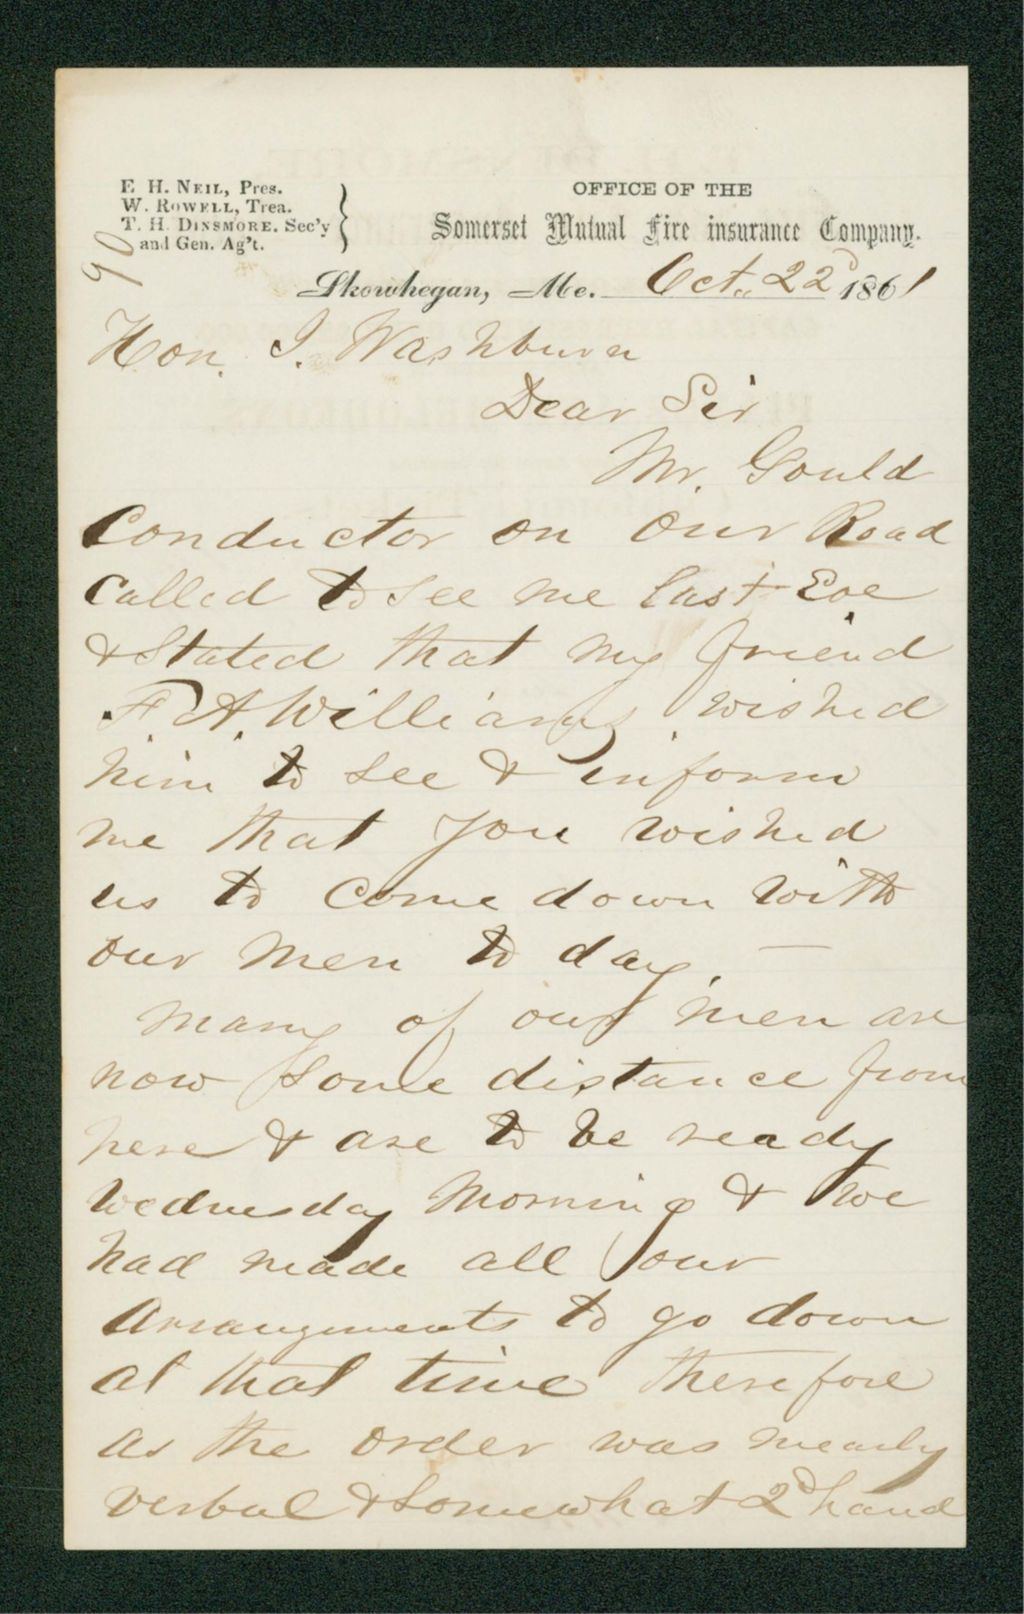 E. H. NEIL, Pres.
W. ROWELL, Trea.
T. H. DINSMORE. Sec'y
and Gen. Ag't.
OFFICE OF THE
Somerset Mutual Fire insurance Company.
Skowhegan, Me. Oct. 22d 1861
90
Hon. I. Washburn
Dear Sir
Mr. Gould
Conductor on our Road
Called to see me last Eve
& Stated that my friend
F. A. Williams wished
him to see & inform
me that you wished
us to come down with
our men to day. —
Many of our men are
now some distance from
here & are to be ready
Wednesday Morning & we
had made all our
Arrangements to go down
at that time therefore
as the order was mearly
verbal & somewhat 2d hand